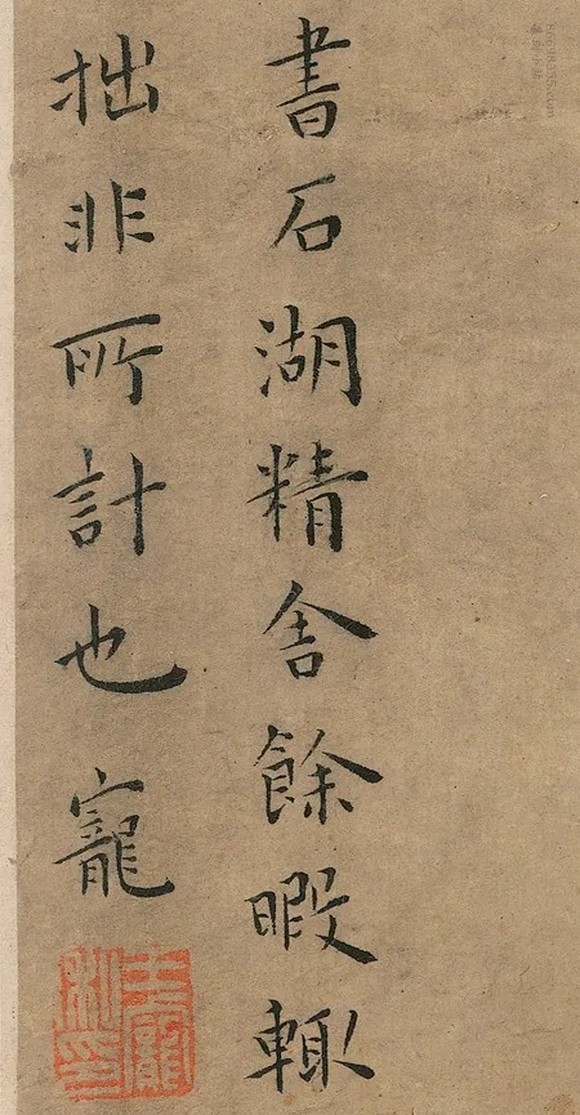 書石湖精舍餘暇輙
拙非所計也寵
王寵私印